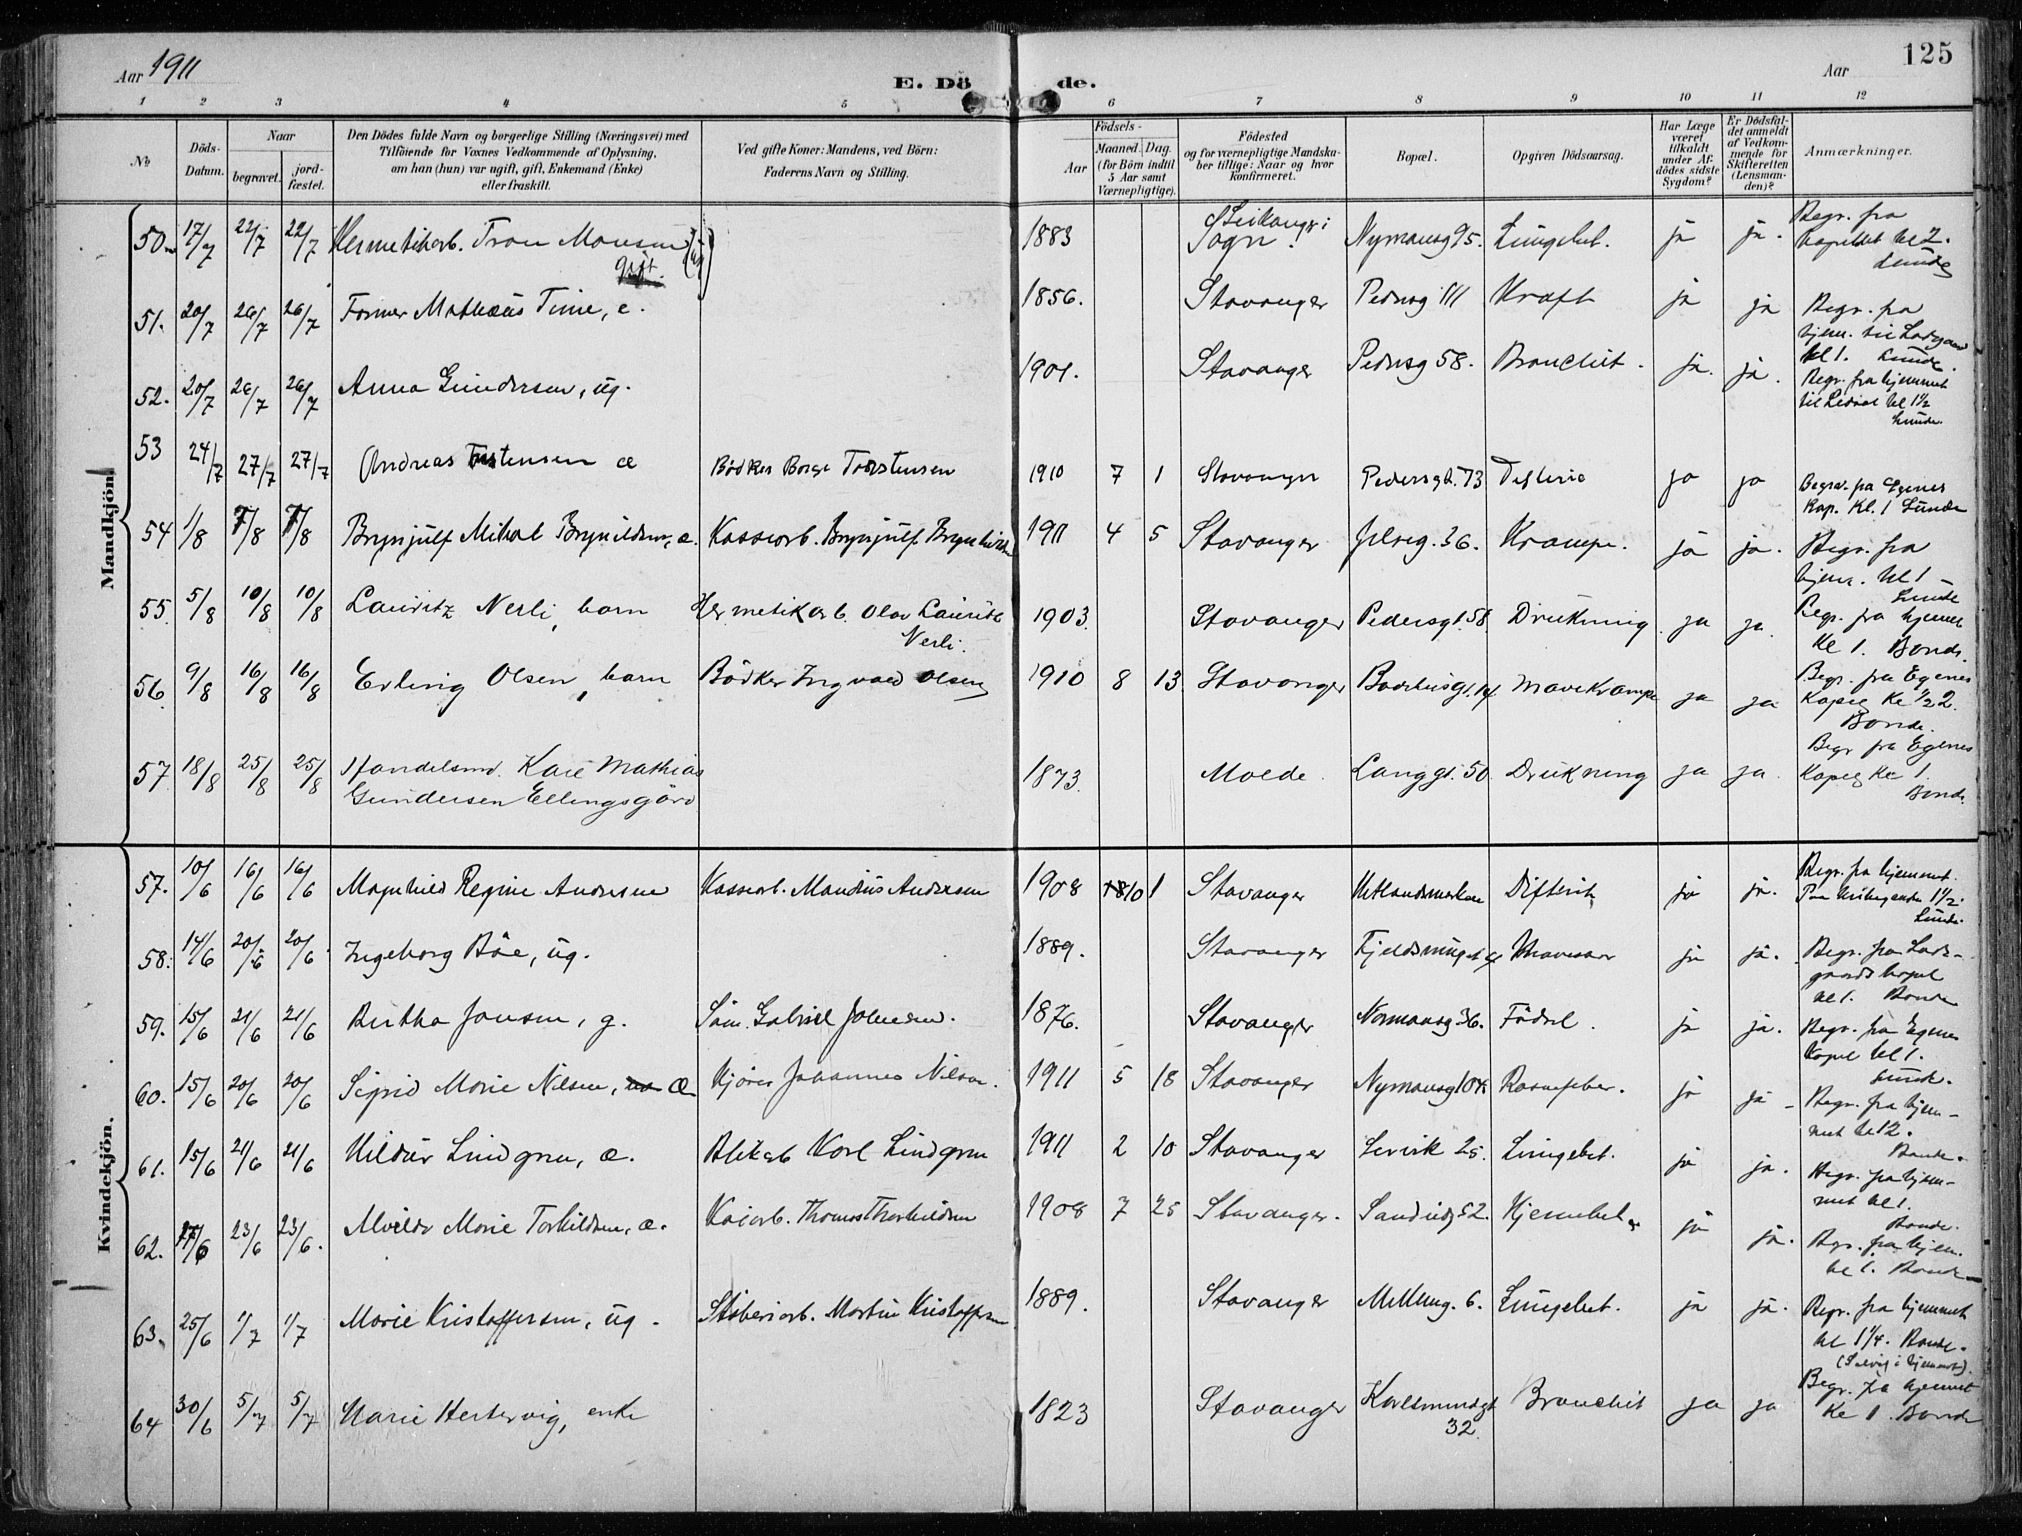 Aar 1911
E. Dö de.
Aar
125
1 2 3 4 5 6 7 8 9 10 11 12
No
Döds-Datum.
Naar
begravet.
jord-fæstet.
Den Dödes fulde Navn og borgerlige Stilling (Næringsvei) med
Tilföiende for Voxnes Vedkommende af Oplysning,
om han (hun) var ugift, gift, Enkemand (Enke)
eller fraskilt.
Ved gifte Koner: Mandens, ved Börn:
Faderens Navn og Stilling.
Födsels-
Aar
Maaned. Dag.
(for Börn indtil
5 Aar samt
Værnepligtige).
Födested
og for værnepligtige Mandska-
ber tillige: Naar og hvor
konfirmeret.
Bopæl.
Opgiven Dödsaarsag.
Har Læge
været
tilkaldt
under Af-
dödes sidste
Sygdom?
Er Dödsfal-
det anmeldt
af Vedkom-
mende for
Skifteretten
(Lensman-
den)?
Anmærkninger.
Mandkjön.
50 17/7 22/7 22/7 Hermetikarb. Monsen gift 1883 Leikanger i Sogn Nymansg 95. Lungebet. ja ja. Begr. fra kapellet kl 2. Lunde
51. 20/7 26/7 26/7 Former Mathæus Time, e. 1856. Stavanger Pedersg 111 Kræft ja ja Begr. fra hjem. til kl 1. Lunde.
52. 20/7 26/7 26/7 Anna Gundersen, ug. 1901. Stavanger Pedersg 58. Bronchit. ja. ja. Begr. fra hjemmet til kl 1½ Lunde.
53 24/7 27/7 27/7 Andreas Torstensen æ Bödker Borge Torstensen 1910 7 1 Stavanger Pedersgt. 73 Difteri ja ja Begrav. fra Egenes Kap. Kl. 1 Lunde
54 1/8 7/8 7/8 Brynjulf Mikal Brynildsen, æ. Kassearb. Brynjulf Brynildsen 1911 4 5 Stavanger Jelseg. 36. Krampe. ja ja. Begr. fra hjem. kl 1 Lunde
55. 5/8 10/8 10/8 Lauritz Nerli, barn Hermetikarb. Olav Lauritz Nerli. 1903. Stavanger Pedersgt. 58. Drukning. ja ja. Begr. fra hjemmet Kl 1. Bonde.
56. 9/8 16/8 16/8 Erling Olsen, barn Bödker Ingvald Olsen 1910 8 13 Stavanger Mavekrampe ja ja Begr. fra Egenes Kapel Kl ½ 2. Bonde.
57. 18/8 25/8 25/8 Handelsmd. Karl Mathias Gundersen Ellingsgård 1873. Molde. Langgt. 50. Drukning ja ja. Begr fra Egenes Kapel Kl 1. Bonde.
Kvindekjön.
57. 10/6 16/6 16/6 Magnhild Regine Andersen Kassearb. Mandius Andersen 1908 10 1 Stavanger Difterit ja ja. Begr. fra hjemmet. 1½. Lunde.
58. 14/6 20/6 20/6 Ingeborg Böe, ug. 1889. Stavanger Mavesaar ja ja. Begr. fra Lade-gaards kapel kl 1. Bonde
59. 15/6 21/6 21/6 Bertha Jonsen, g. Söm. Gabriel Johnsen. 1876. Stavanger Normansg 36. Födsel. ja ja. Begr. fra Egenes Kapel kl 1. Lunde.
60. 15/6 20/6 20/6 Sigrid Marie Nilsen, æ Kjörer Johannes Nilsen. 1911 5 18 Stavanger Nymansg 104 Rosenfeber. ja ja Begr. fra hjem-met kl 2. Bonde.
61. 15/6 21/6 21/6 Hildur Lindgren, æ. Blikarb Karl Lindgren 1911 2 10 Stavanger Lervik 25. Lungebet. ja ja. Begr. fra hjem-met kl 1. Bonde.
62. 17/6 23/6 23/6. Alvilde Marie Torkildsen, æ. Kaiarb. Thomas Thorkildsen 1908 7 25 Stavanger. Sandeidg 52. Hjernebet. ja ja. Begr. fra hjem. kl 1. Bonde
63. 25/6 1/7 1/7 Marie Kristoffersen, ug. Støberiarb. Martin Kristoffersen 1889. Stavanger Mellemg. 6. Lungebet. ja ja. Begr. fra hjemmet kl 1¼. Bonde.
64 30/6 5/7 5/7 Marie Hertervig, enke 1823 Stavanger 32. Bronchit ja ja Begr. fra hjemmet Kl 1. Bonde